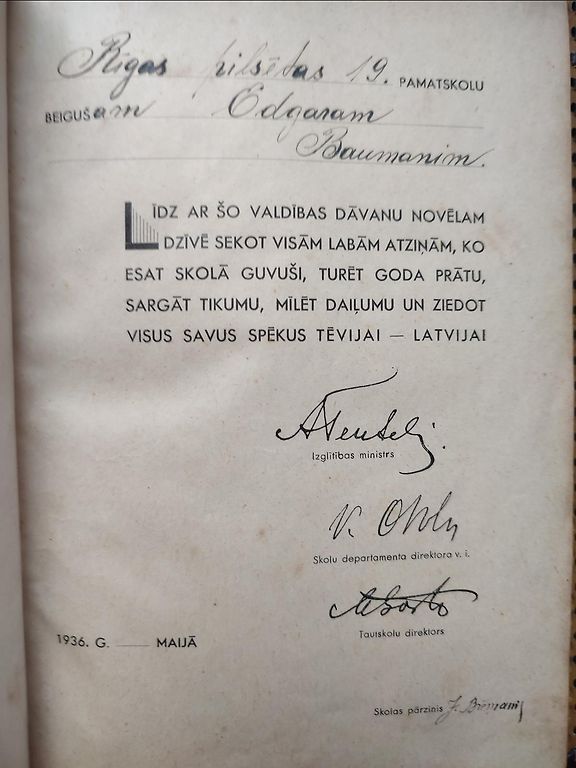 Rīgas pilsētas 19. PAMATSKOLU
BEIGUŠam Edgaram
Baumanim.
LĪDZ AR ŠO VALDĪBAS DĀVANU NOVĒLAM
DZĪVĒ SEKOT VISĀM LABĀM ATZIŅĀM, KO
ESAT SKOLĀ GUVUŠI, TURĒT GODA PRĀTU,
SARGĀT TIKUMU, MĪLĒT DAIĻUMU UN ZIEDOT
VISUS SAVUS SPĒKUS TĒVIJAI — LATVIJAI
Izglītības ministrs
V.
Skolu departamenta direktora v. i.
Tautskolu direktors
1936. G. — MAIJĀ
Skolas pārzinis J.